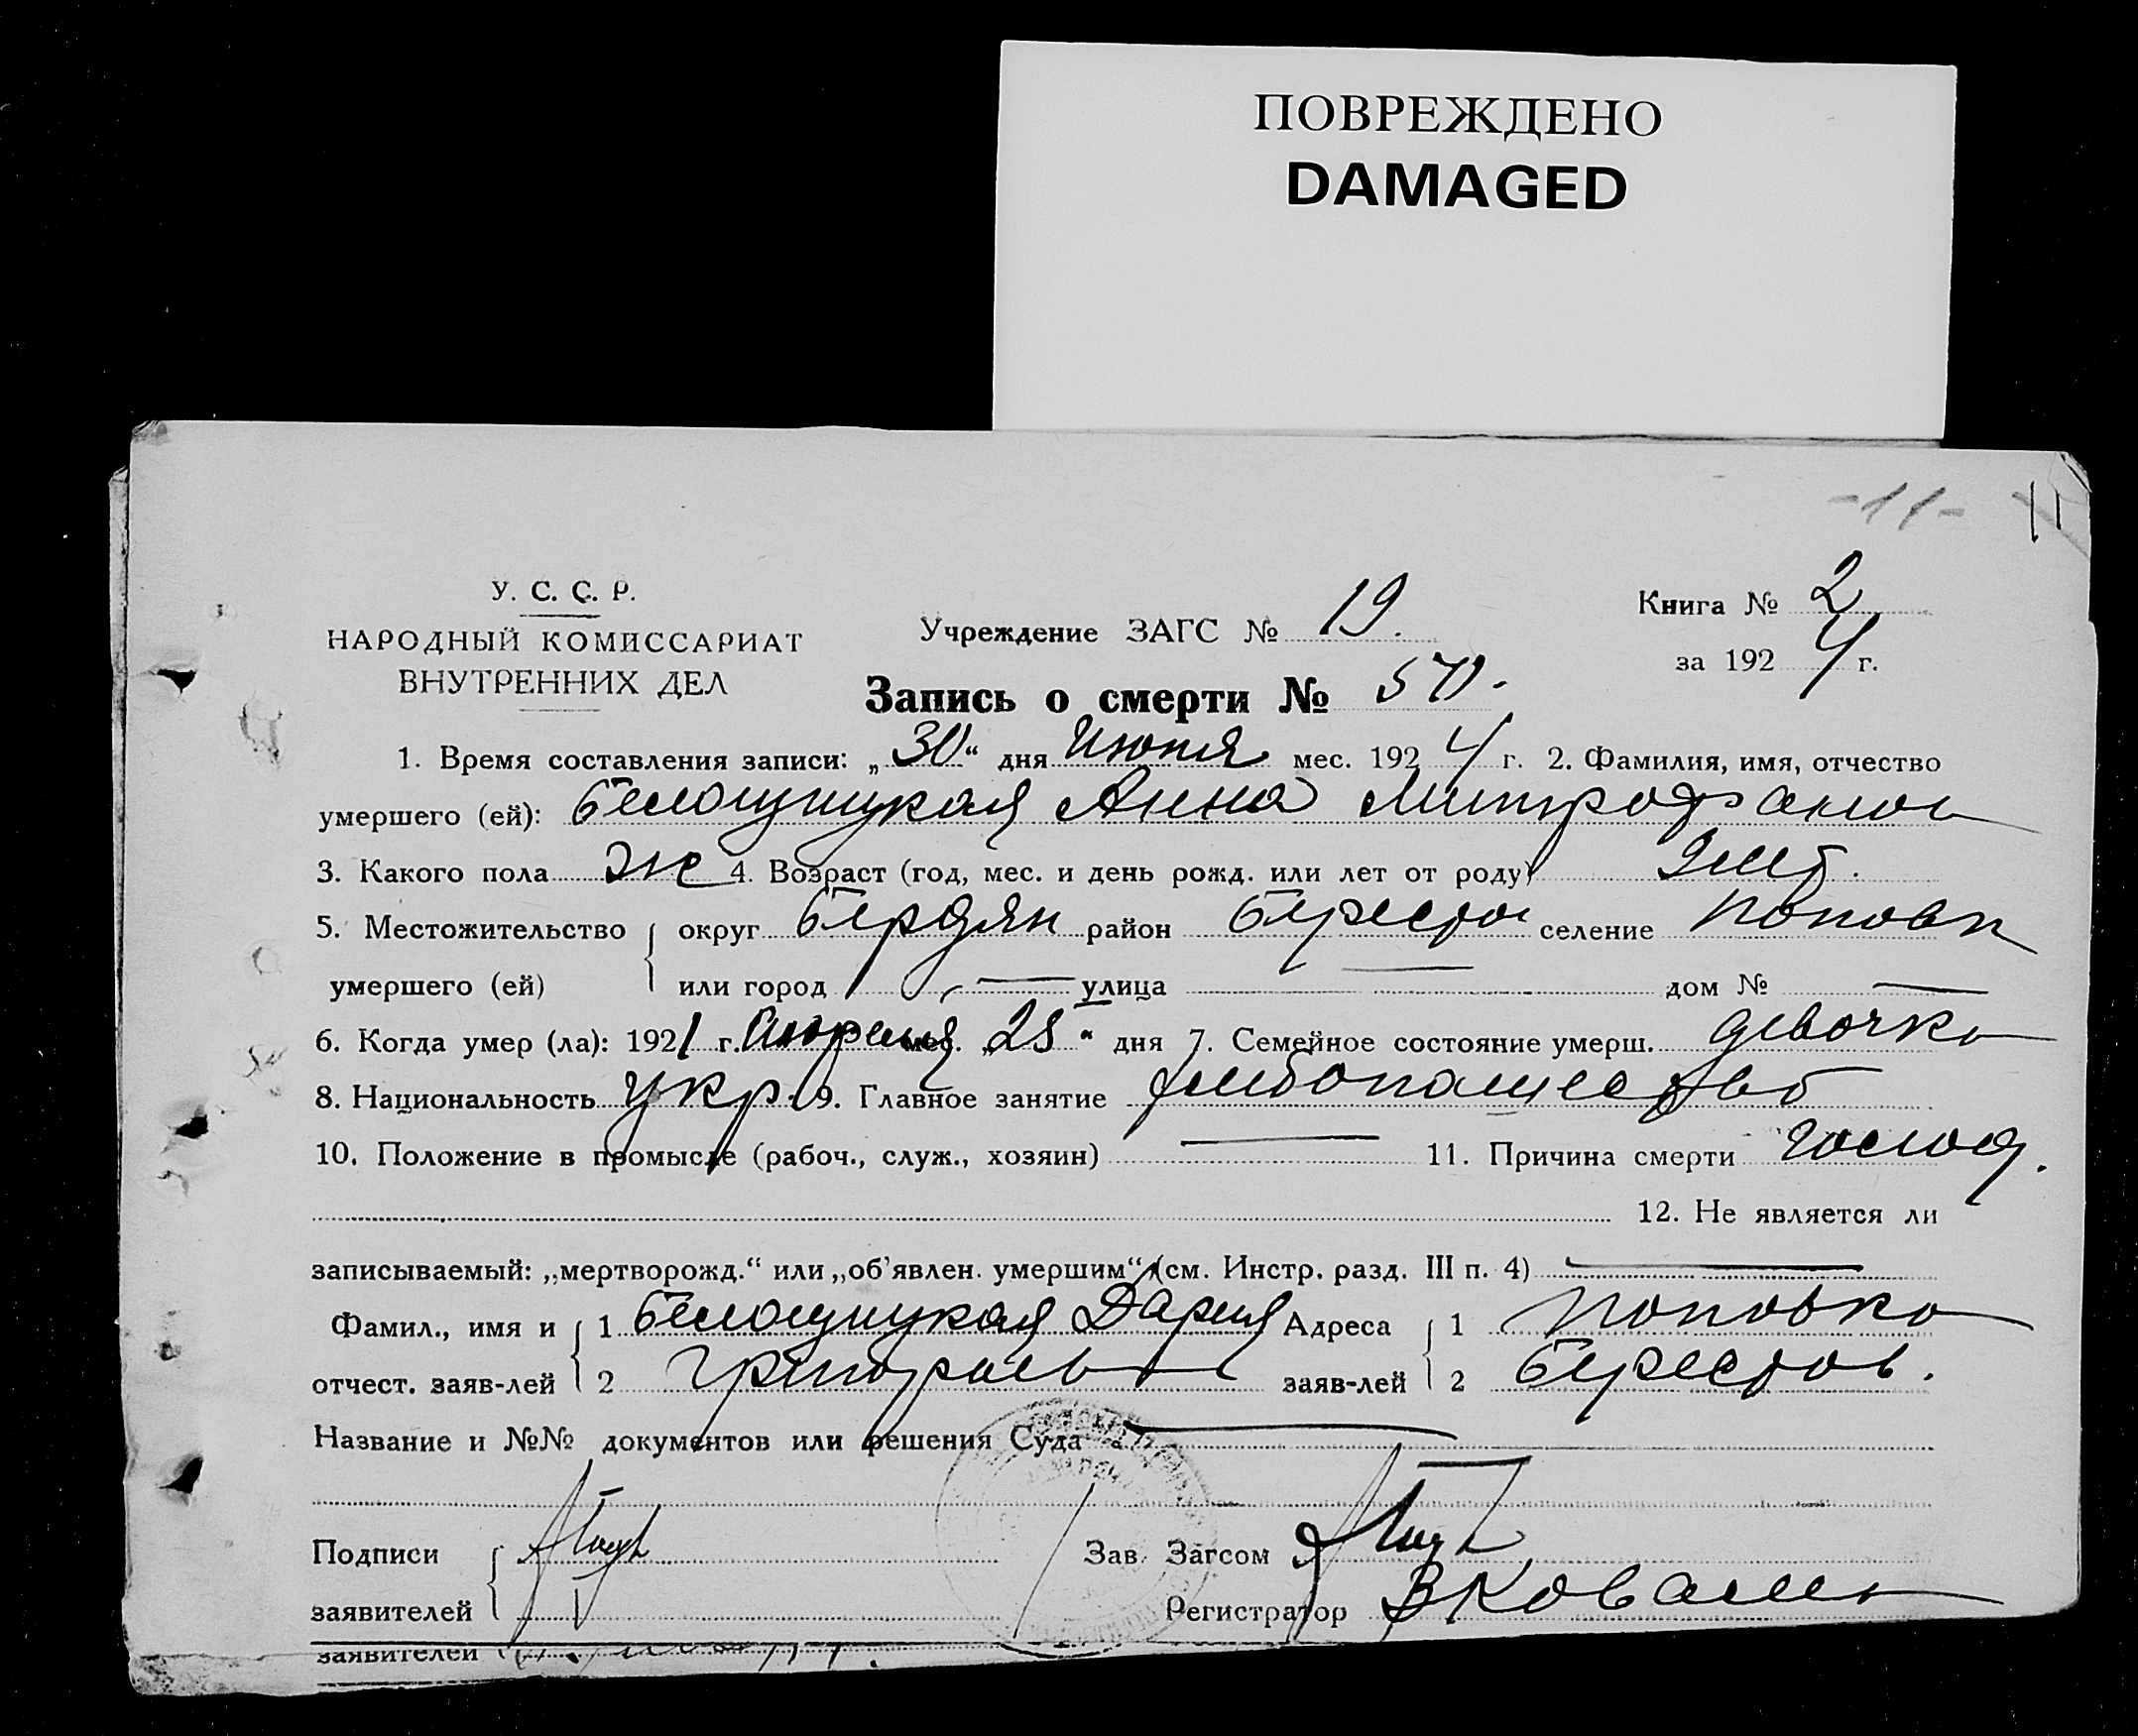 ПОВРЕЖДЕНО
DAMAGED
-11- 11
У. С. С. Р.
НАРОДНЫЙ КОМИССАРИАТ
ВНУТРЕННИХ ДЕЛ
Учреждение ЗАГС № 19.
Книга № 2
за 1924 г.
Запись о смерти №
1. Время составления записи: „30“ дня Июня мес. 1924 г. 2. Фамилия, имя, отчество
умершего (ей): Белощицкая Анна Митрофанов
3. Какого пола ж 4. Возраст (год, мес. и день рожд. или лет от роду)
5. Местожительство округ Бердян район Бересто селение Поповк
умершего (ей) или город — улица — дом № —
6. Когда умер (ла): 1921 г. Апреля мес. „25“ дня 7. Семейное состояние умерш. девочка
8. Национальность укр. 9. Главное занятие хлебопашество
10. Положение в промысле (рабоч., служ., хозяин) — 11. Причина смерти голод.
12. Не является ли
записываемый: „мертворожд.“ или „об'явлен. умершим“ (см. Инстр. разд. III п. 4) —
Фамил., имя и 1 Белощицкая Дария Адреса 1 Поповка
отчест. заяв-лей 2 Григорьев заяв-лей 2 Берестов.
Название и №№ документов или решения Суда —
Подписи Зав. Загсом
заявителей Регистратор ВКоваль
заявителей